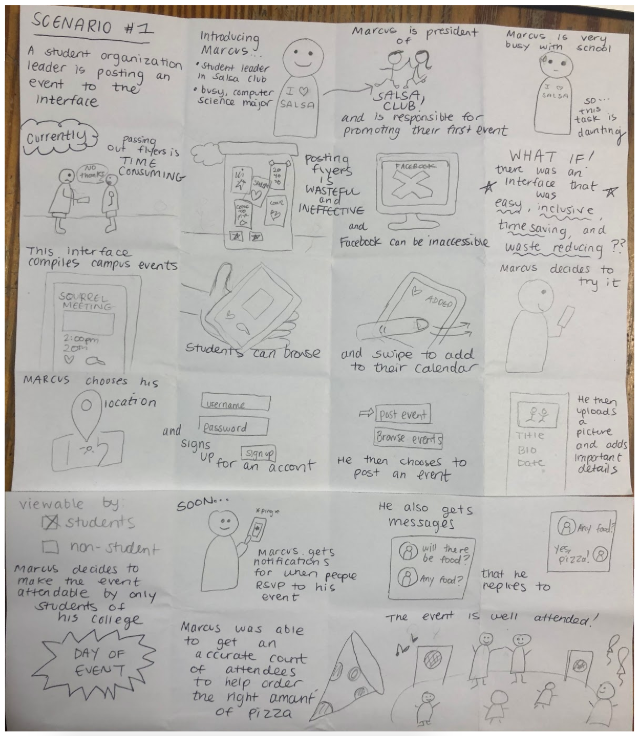 SCENARIO #1
A student organization
leader is posting an
event to the
interface
Introducing
Marcus...
• student leader
in Salsa Club
• busy, computer
science major
I ♡
SALSA
Marcus is president
of
SALSA
CLUB!
and is responsible for
promoting their first event
Marcus is very
busy with school
I ♡
SALSA
SO...
THIS
task is
daunting
Currently
passing
out flyers is
TIME
CONSUMING
NO
THANKS
POSTING
flyers
IS
WASTEFUL
and
INEFFECTIVE
FACEBOOK
and
Facebook can be inaccessible
WHAT IF!
there was an
interface that
was
easy, inclusive,
time saving, and
waste reducing ??
This interface
compiles campus events
SQUIRREL
MEETING
2:00pm
Students can browse
ADDED
and swipe to add
to their calendar
Marcus decides to
try it
MARCUS chooses his
location
and
signs
up
for an account
username
password
sign up
post event
Browse events
He then chooses to
post an event
TITLE
BIO
Date
He then
uploads
a
picture
and adds
important
details
viewable by
☒ students
☐ non-student
Marcus decides to
make the event
attendable by only
students of
his college
SOON...
Marcus gets
notifications
for when people
RSVP to his
event
He also gets
messages
will there
be food?
Any food?
that he
replies to
Any food?
yes,
pizza!
DAY OF
EVENT
Marcus was able
to get an
accurate count
of attendees
to help order
the right amount
of pizza
The event is well attended!